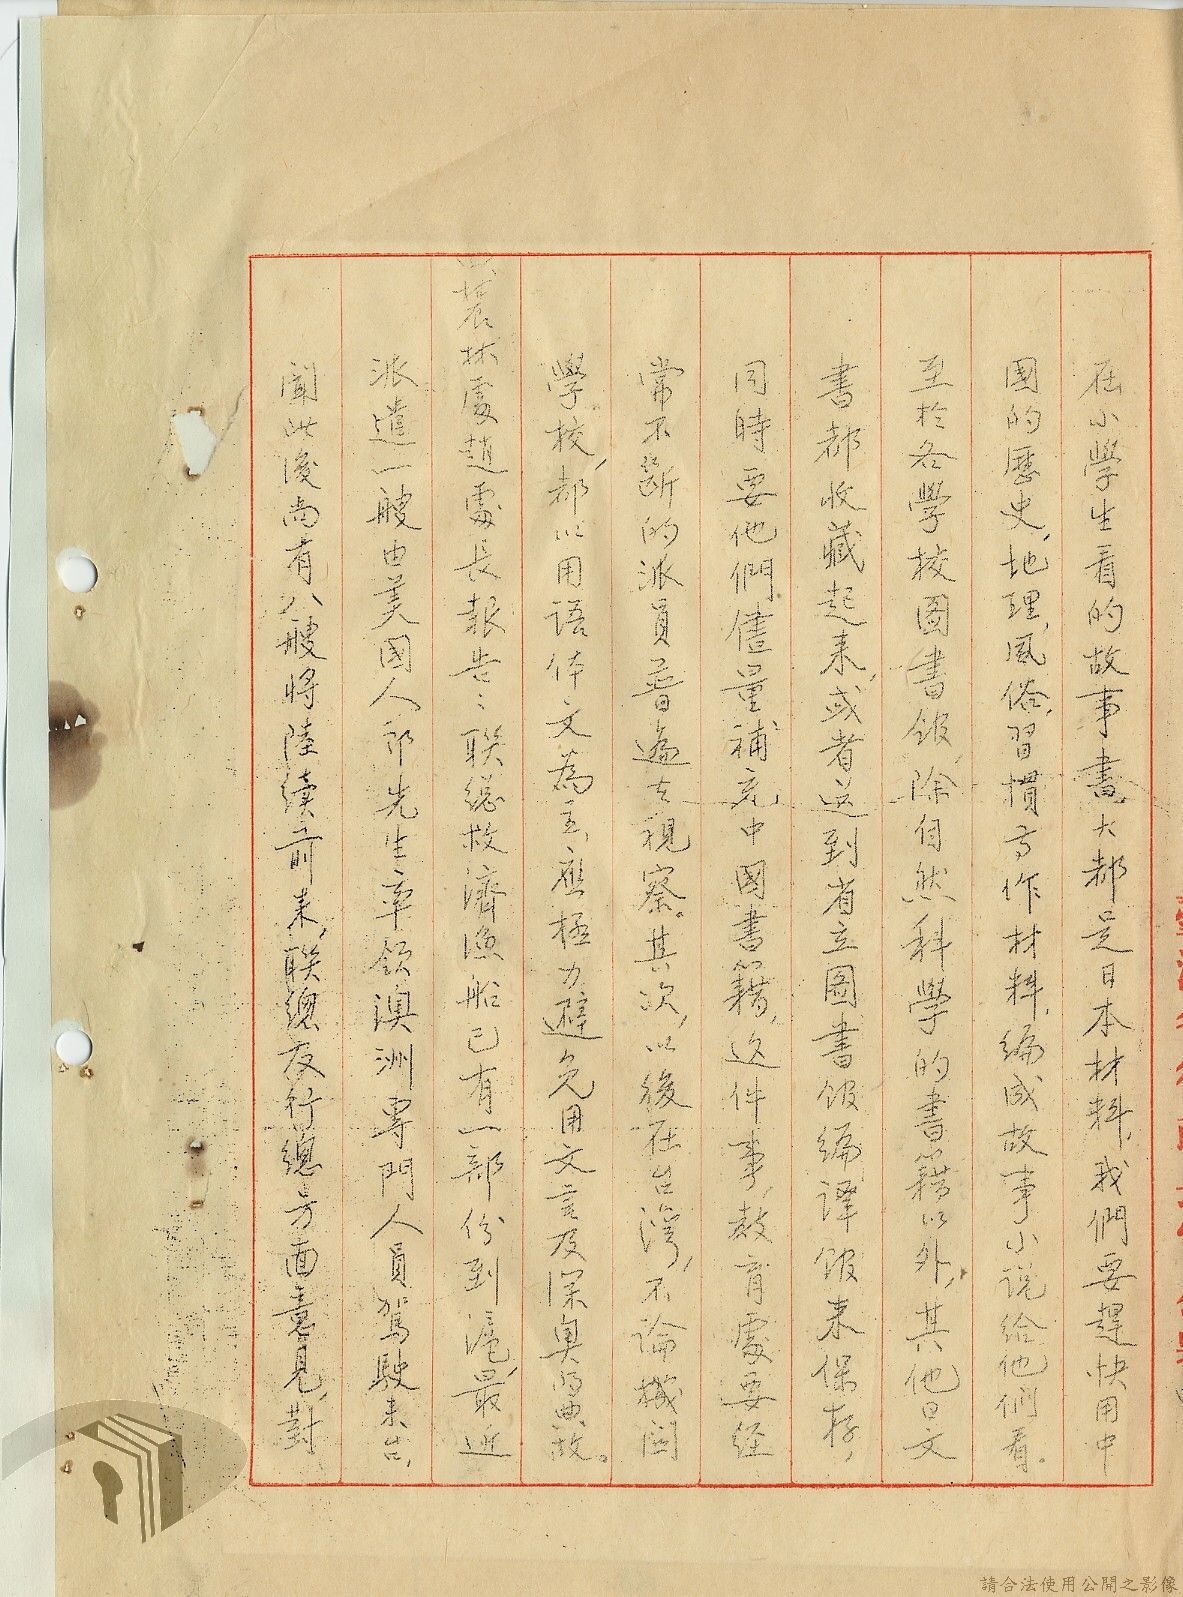 在小學生看的故事書，大都是日本材料，我們要趕快用中
國的歷史，地理，風俗，習慣等作材料，編成故事小説給他们看。
至於各學校图書館，除自然科學的書籍以外，其他日文
書都收藏起来，或者送到省立圖書館編譯館来保存，
同時要他們儘量補充中國書籍，这件事，教育處要經
常不斷的派員普遍去視察。其次，以後在台灣，不論機関
學校，都以用語体文為主，應極力避免用文言及深奥的典故。
農林處趙處長報告：联總救濟漁船已有一部份到滬，最近
派遣一艘由美國人邝先生率領澳洲專門人員駕駛来台，
聞此後尚有八艘將陸續前来，联總及行總方面意見，對
請合法使用公開之影像